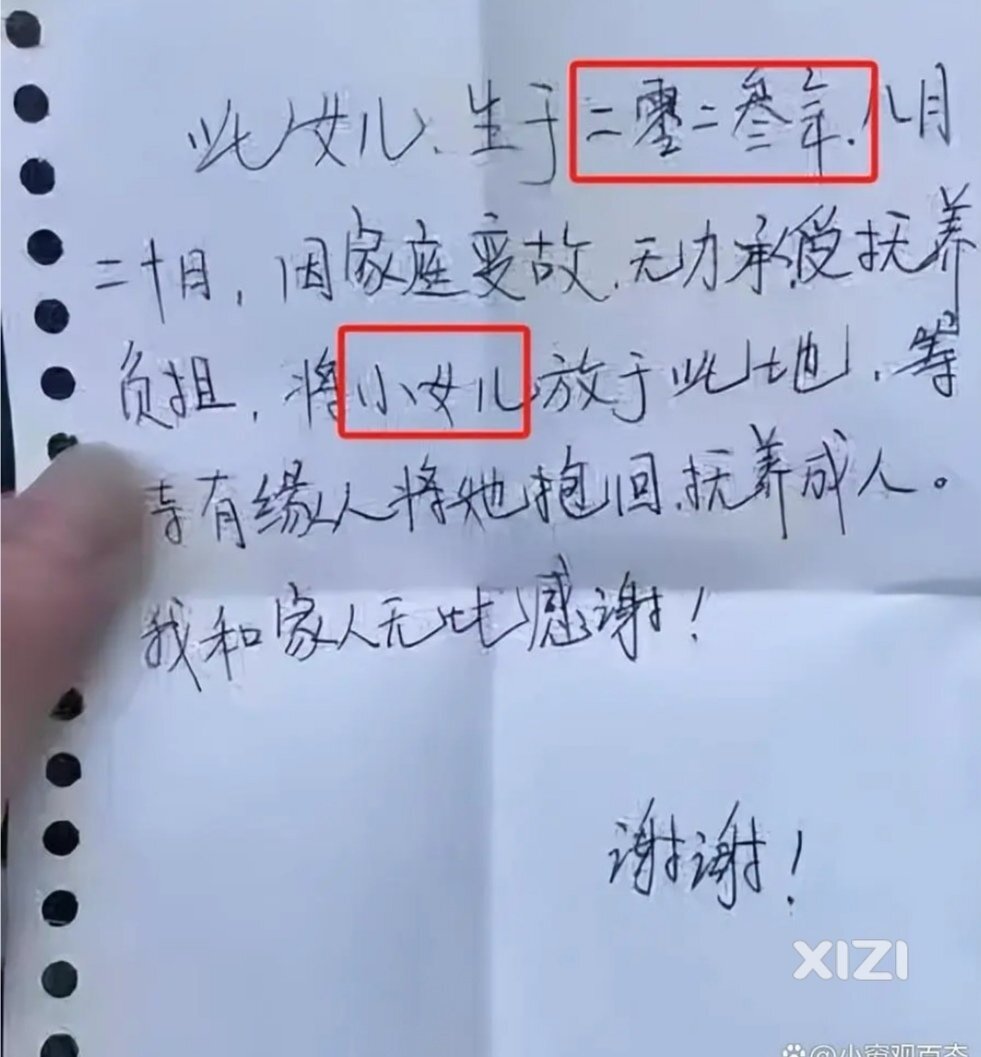 此女儿、生于二零二叁年.八月
二十日，因家庭变故.无力承受抚养
负担，将小女儿放于此地，等
有缘人将她抱回.抚养成人。
我和家人无比感谢！
谢谢！
XIZI
@小窕观百态